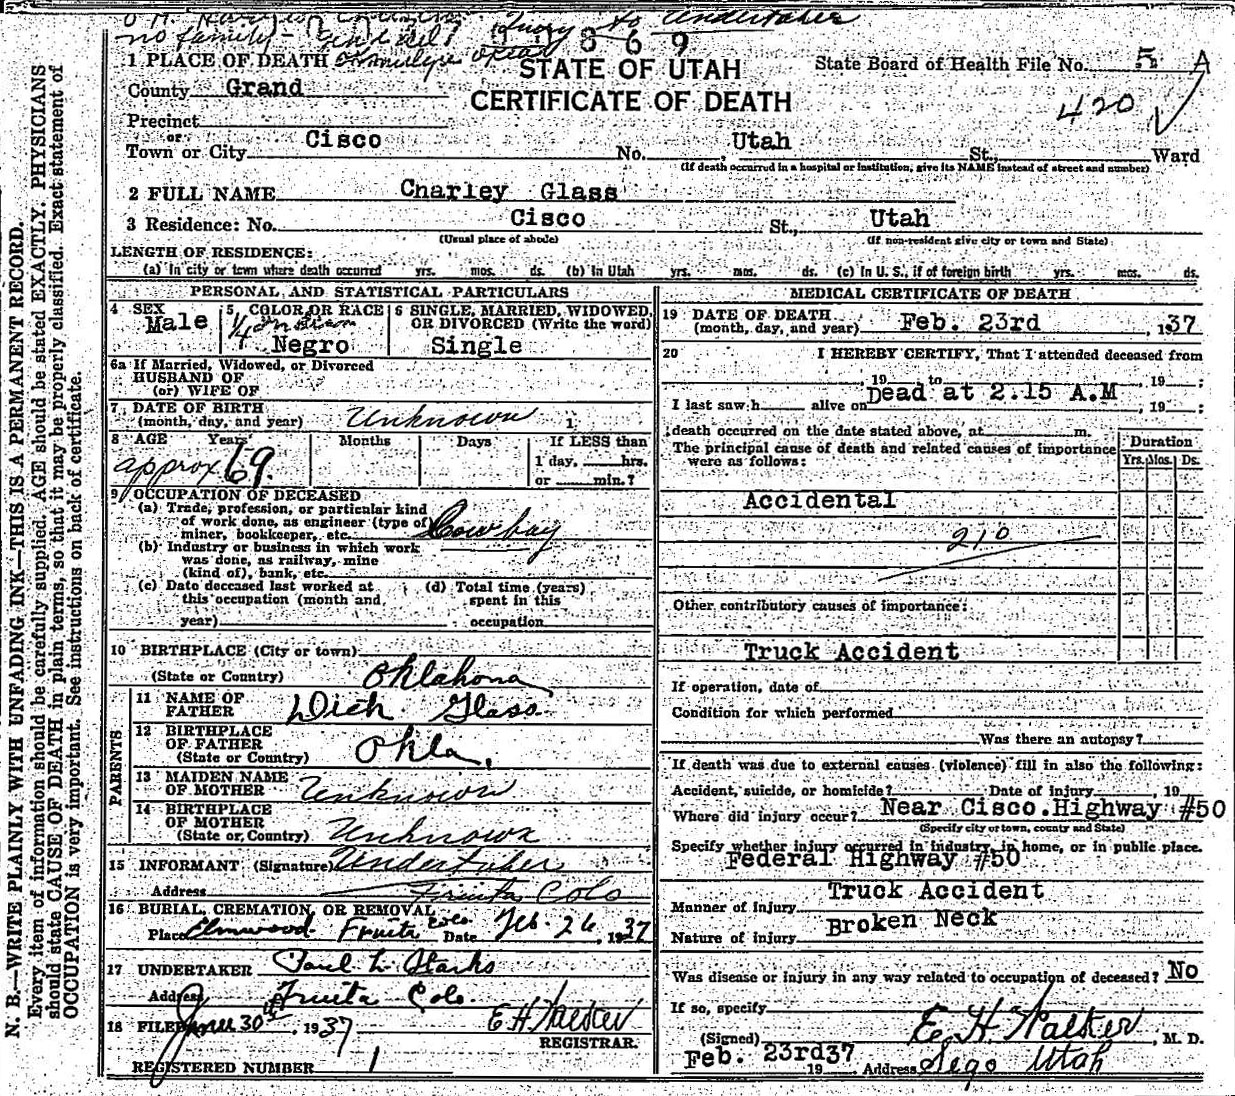 no family
to Undertaker
869
1 PLACE OF DEATH
STATE OF UTAH
State Board of Health File No. 5 A
County Grand
CERTIFICATE OF DEATH
420
Precinct
or
Town or City Cisco No. Utah St., Ward
(If death occurred in a hospital or institution, give its NAME instead of street and number)
2 FULL NAME Charley Glass
3 Residence: No. Cisco St., Utah
(Usual place of abode) (If non-resident give city or town and State)
LENGTH OF RESIDENCE:
(a) In city or town where death occurred yrs. mos. ds. (b) In Utah yrs. mos. ds. (c) In U. S., if of foreign birth yrs. mos. ds.
PERSONAL AND STATISTICAL PARTICULARS
4 SEX Male
5 COLOR OR RACE 1/4 Indian Negro
6 SINGLE, MARRIED, WIDOWED, OR DIVORCED (Write the word) Single
6a If Married, Widowed, or Divorced
HUSBAND OF
(or) WIFE OF
7 DATE OF BIRTH
(month, day, and year) Unknown 1
8 AGE Years Months Days If LESS than
approx 69. 1 day, hrs.
or min.?
9 OCCUPATION OF DECEASED
(a) Trade, profession, or particular kind
of work done, as engineer (type of)
miner, bookkeeper, etc. Cow boy
(b) Industry or business in which work
was done, as railway, mine
(kind of), bank, etc.
(c) Date deceased last worked at
this occupation (month and
year)
(d) Total time (years)
spent in this
occupation
10 BIRTHPLACE (City or town)
(State or Country) Oklahoma
PARENTS
11 NAME OF
FATHER Dick Glass
12 BIRTHPLACE
OF FATHER
(State or Country) Okla.
13 MAIDEN NAME
OF MOTHER Unknown
14 BIRTHPLACE
OF MOTHER
(State or Country) Unknown
15 INFORMANT (Signature) Undertaker
Address Fruita Colo
16 BURIAL, CREMATION, OR REMOVAL
Place Elmwood Fruita Colo. Date Feb. 26, 1937
17 UNDERTAKER Paul L. Starks
Address Fruita Colo.
18 FILED 30th, 1937 E. H. Walster
REGISTRAR.
REGISTERED NUMBER 1
MEDICAL CERTIFICATE OF DEATH
19 DATE OF DEATH
(month, day, and year) Feb. 23rd, 1937
20 I HEREBY CERTIFY, That I attended deceased from
, 19 to , 19 ;
I last saw h alive on Dead at 2:15 A.M , 19 ;
death occurred on the date stated above, at m.
The principal cause of death and related causes of importance
were as follows:
Duration
Yrs. Mos. Ds.
Accidental
210
Other contributory causes of importance:
Truck Accident
If operation, date of
Condition for which performed
Was there an autopsy?
If death was due to external causes (violence) fill in also the following:
Accident, suicide, or homicide? Date of injury , 19
Where did injury occur? Near Cisco.Highway #50
(Specify city or town, county and State)
Specify whether injury occurred in industry, in home, or in public place.
Federal Highway #50
Truck Accident
Manner of injury
Nature of injury Broken Neck
Was disease or injury in any way related to occupation of deceased? No
If so, specify
(Signed) E. H. Walster, M. D.
Feb. 23rd37
19 Address Sego Utah
N. B.—WRITE PLAINLY WITH UNFADING INK—THIS IS A PERMANENT RECORD.
Every item of information should be carefully supplied. AGE should be stated EXACTLY. PHYSICIANS
should state CAUSE OF DEATH in plain terms, so that it may be properly classified. Exact statement of
OCCUPATION is very important. See instructions on back of certificate.